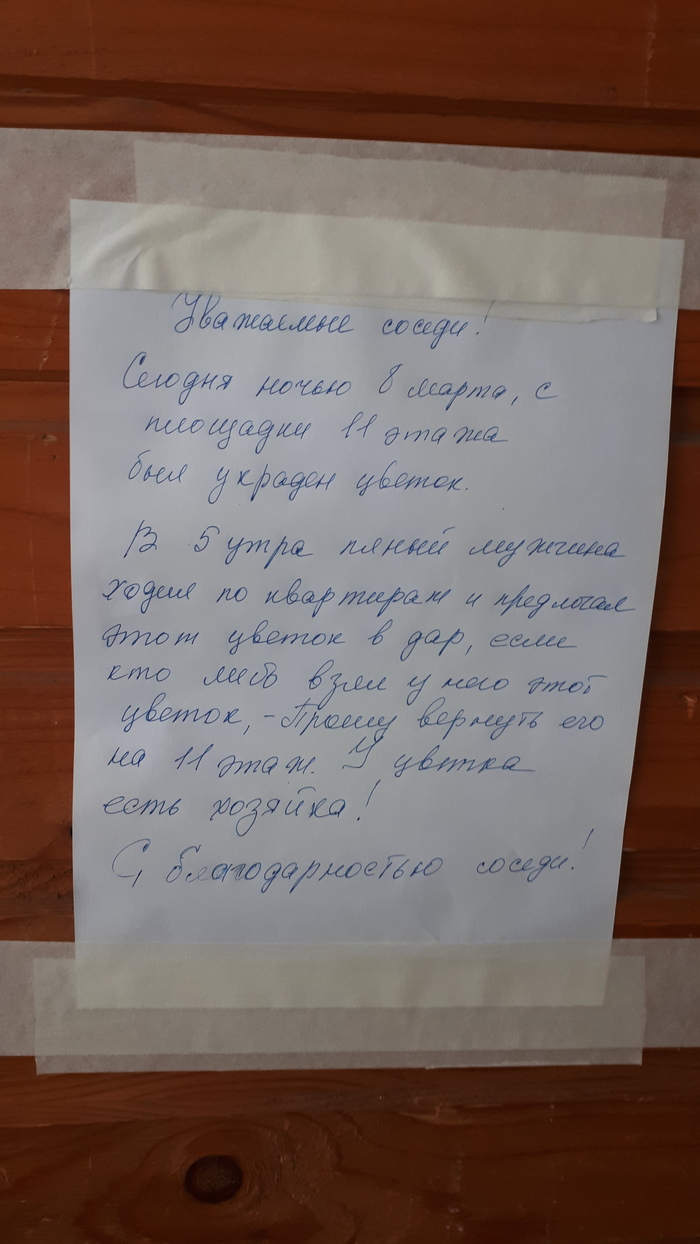 Уважаемые соседи!
Сегодня ночью 8 марта, с
площадки 11 этажа
был украден цветок.
В 5 утра пяный мужчина
ходил по квартирам и предлогал
этот цветок в дар, если
кто либо взял у него этот
цветок, - Прошу вернуть его
на 11 этаж. У цветка
есть хозяйка!
С благодарностью соседи!